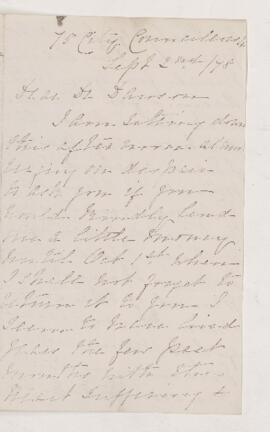 75 City Councillors St
Sept 2nd /78
Dear Dr Dawson
I am sitting down
this afternoon almost
on despair
to ask you if you
would kindly lend
me a little money
until Oct 1st when
I shall not forget to
return it to you I
seem to have lived
the few past
months with the
most suffering &